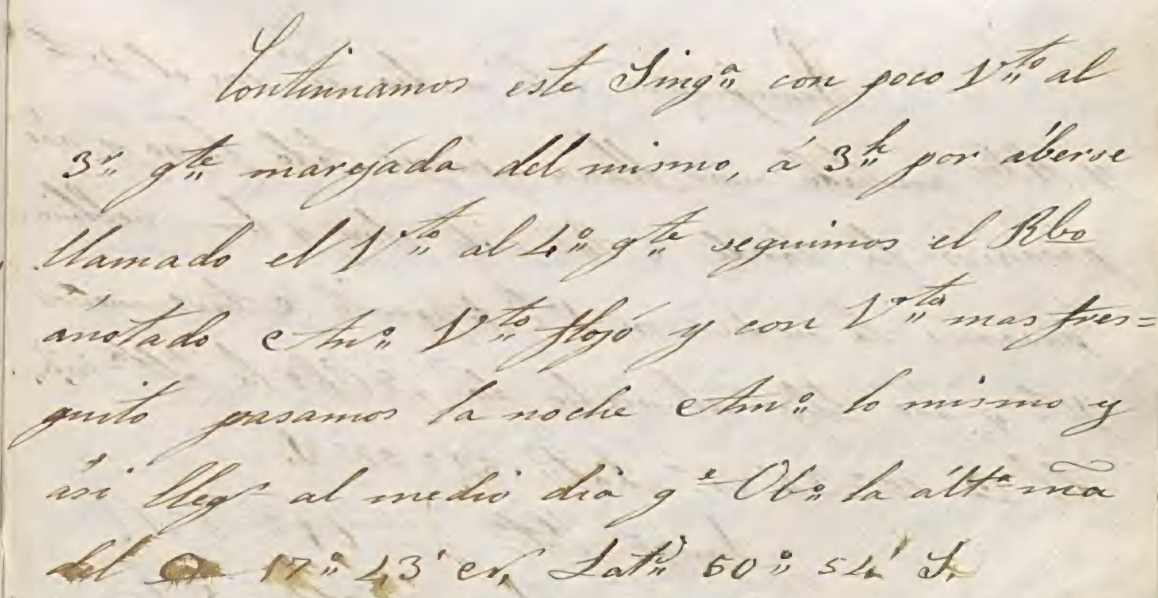 Continuamos este Singª con poco Vto al
3r qte marejada del mismo, á 3h por áberse
llamado el Vto al 4º qte seguimos el Rbo
ánotado Anº Vto flojo y con Vto mas fres=
quito pasamos la noche Amº lo mismo y
ási llegs al medio dia qe Obº la áltª mã
del 17º 43' Latd 50º 54' S.